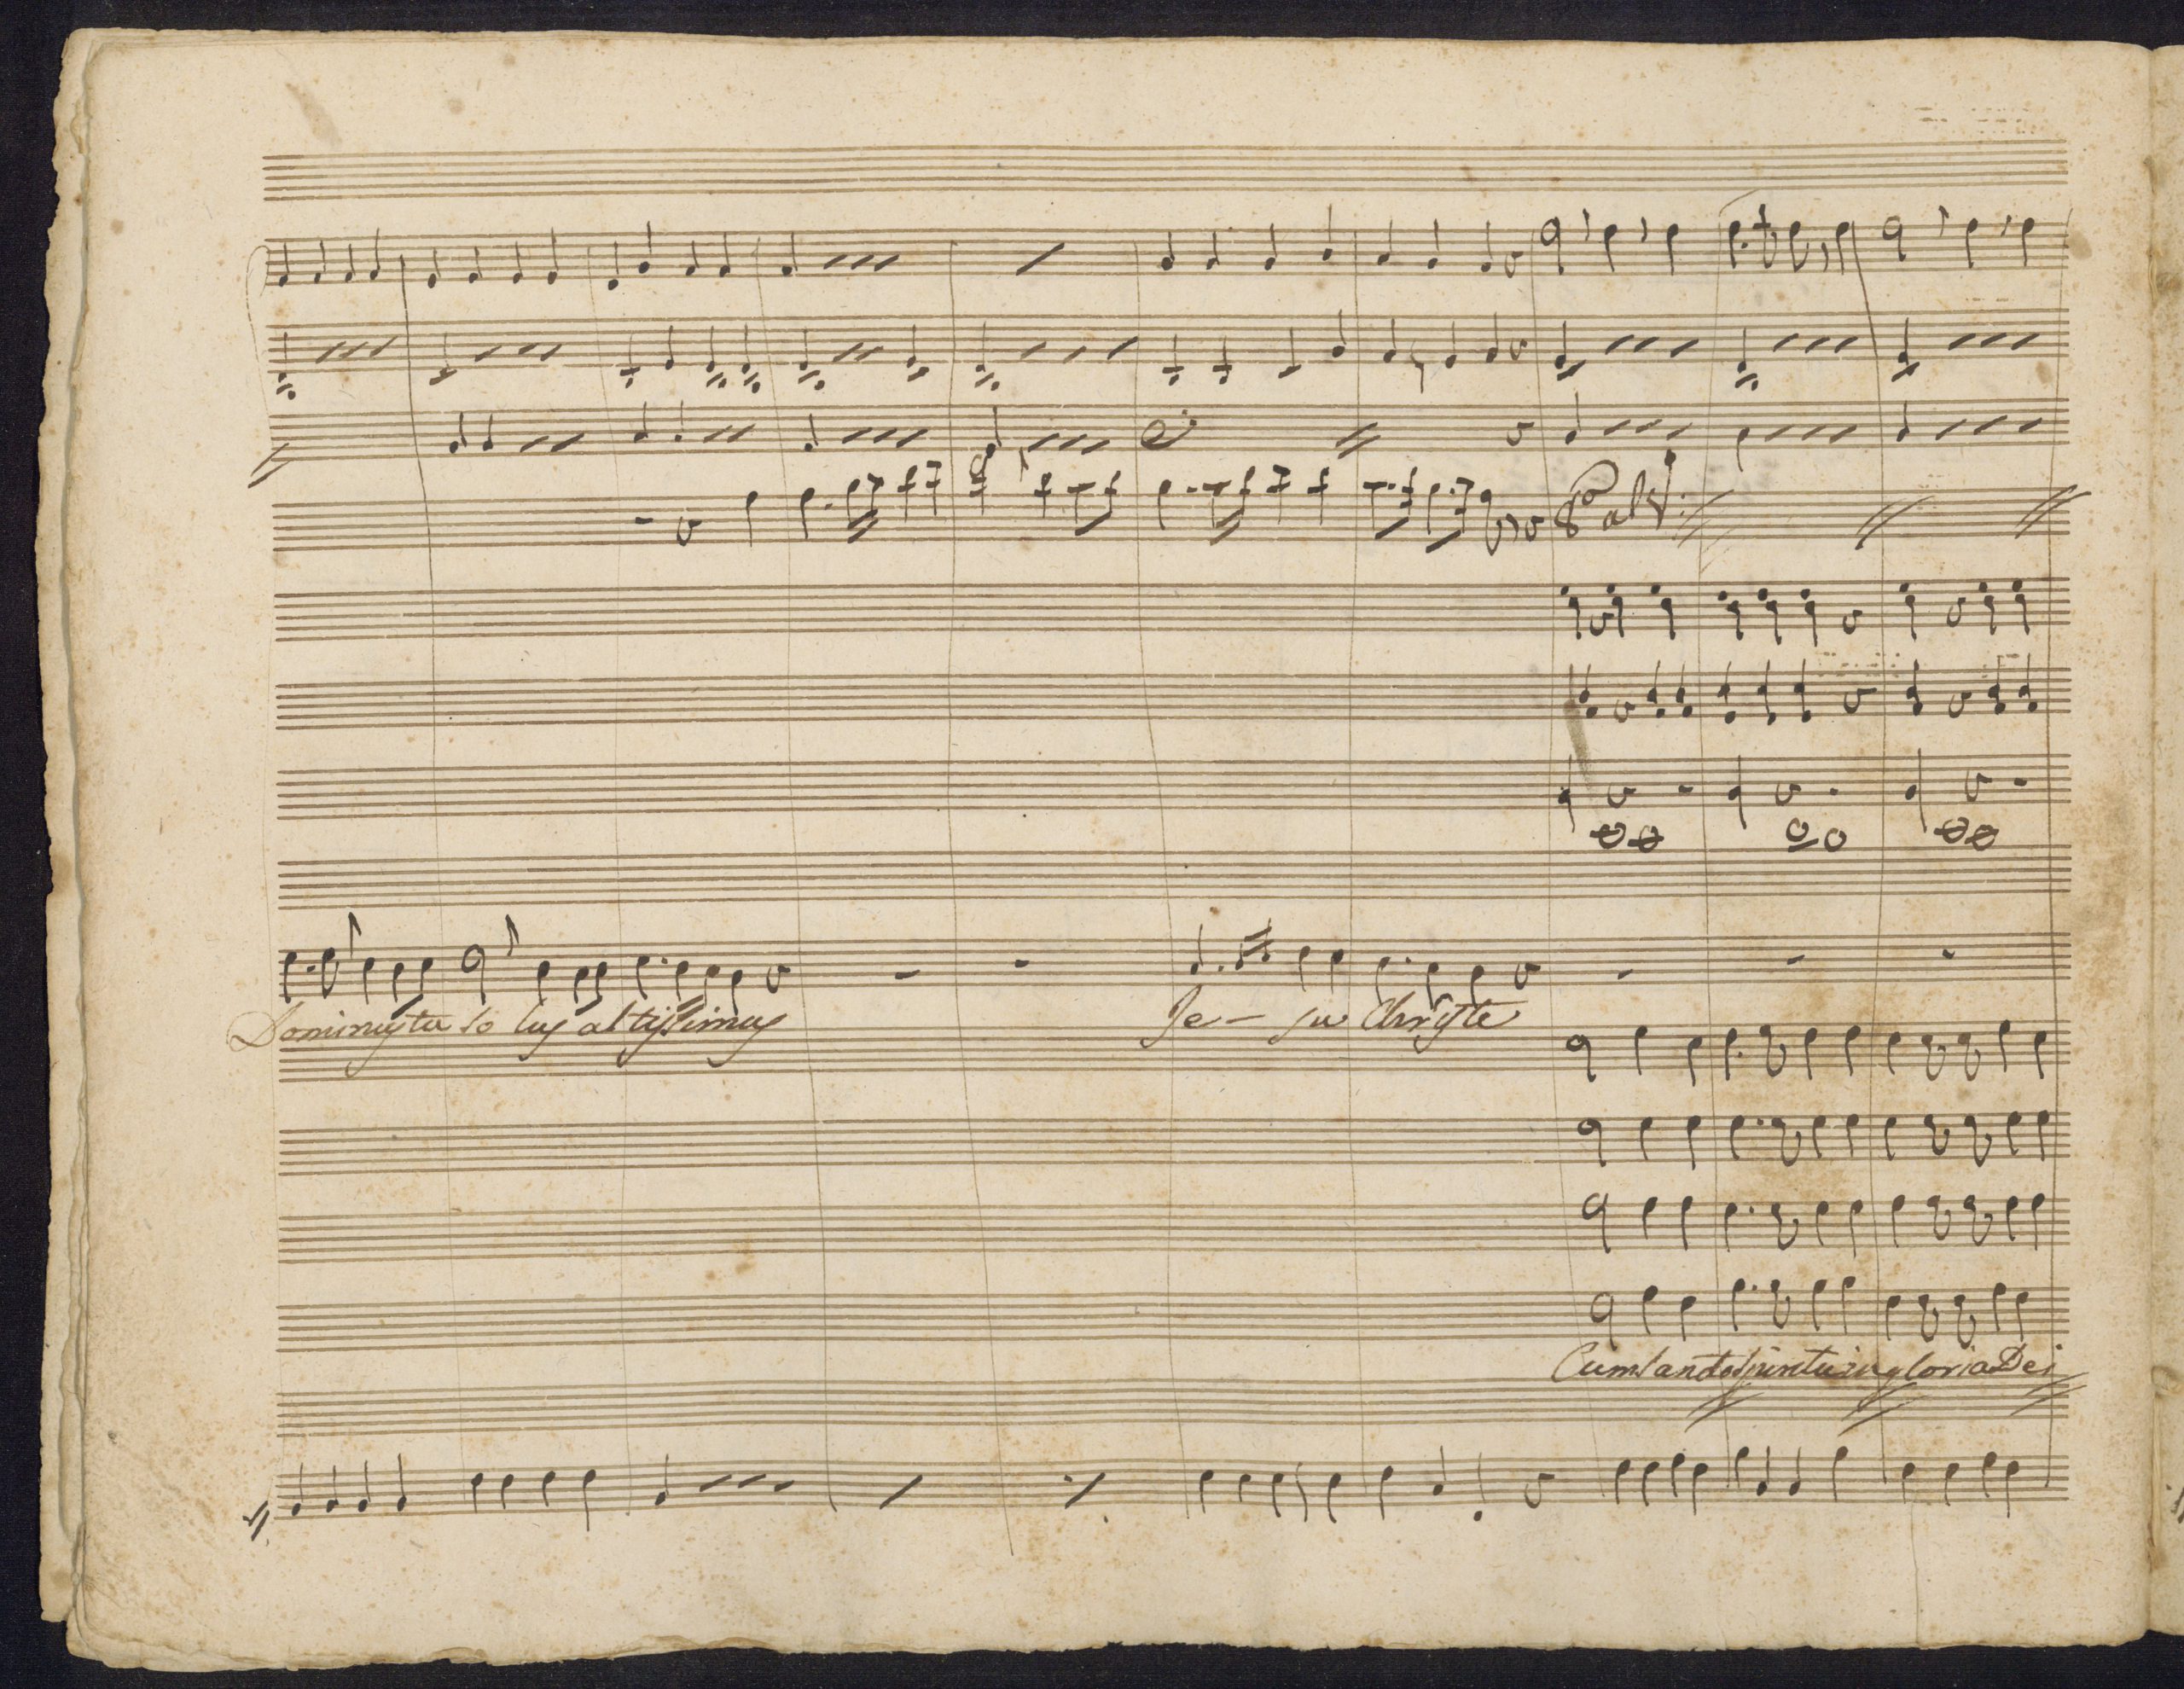 8va al V:
Dominus tu so lus altissimus Je - su Christe
Cum sancto spiritu in gloria Dei